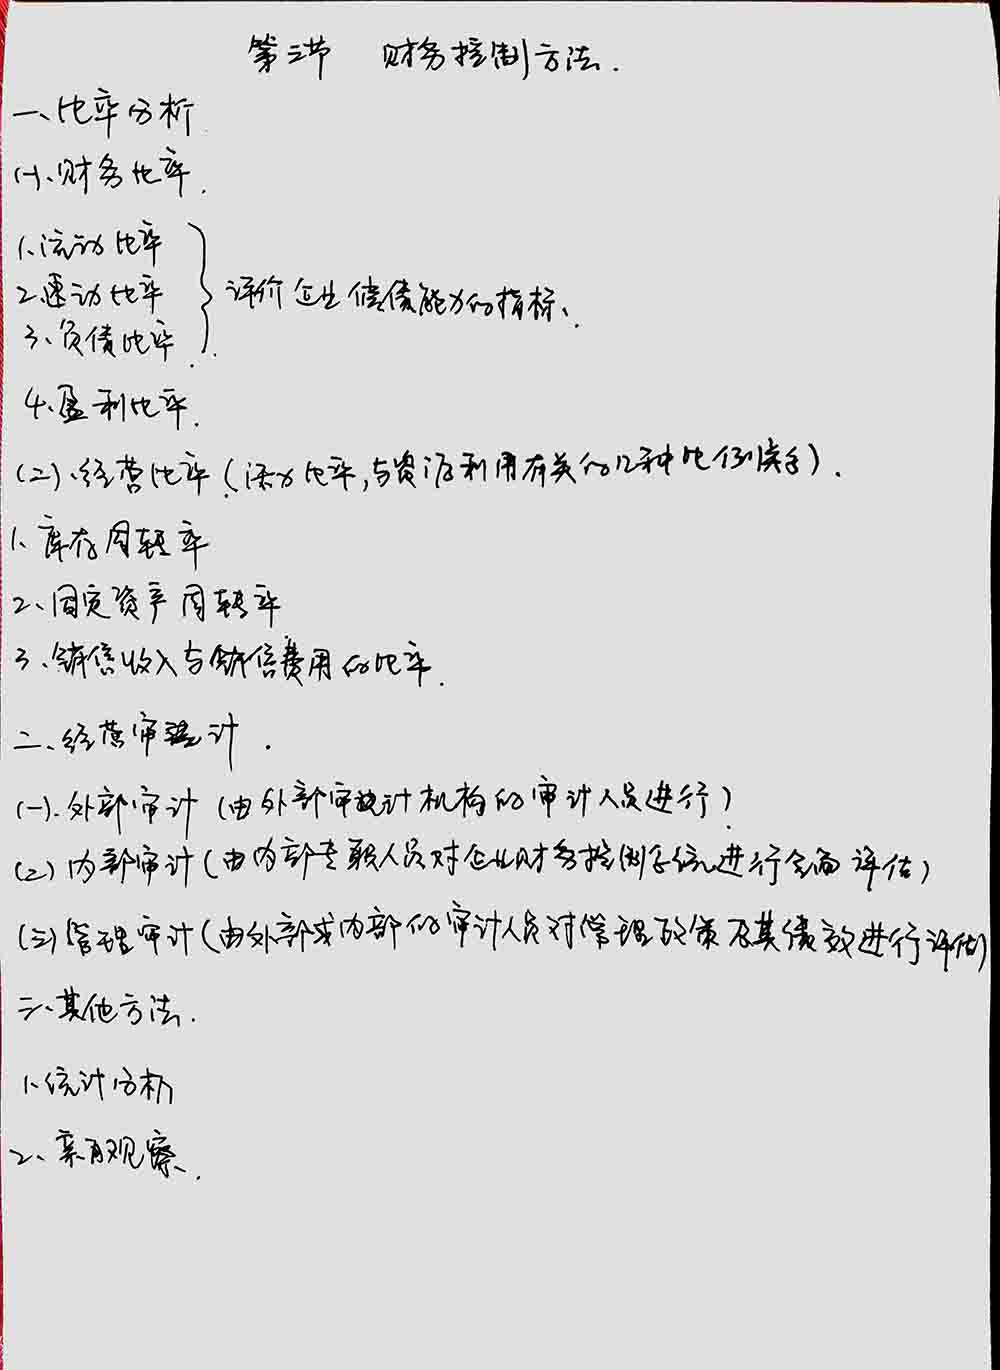 第三节 财务控制方法.
一、比率分析
(一).财务比率.
1.流动比率
2.速动比率
3.负债比率.
评价企业偿债能力的指标、
4.盈利比率.
(二).经营比率(活力比率,与资源利用有关的几种比例关系).
1.库存周转率
2、固定资产周转率
3、销售收入与销售费用的比率.
二、经营审计.
(一).外部审计(由外部审计机构的审计人员进行)
(二)内部审计(由内部专职人员对企业财务控制系统进行全面评估)
(三)管理审计(由外部或内部的审计人员对管理政策及其绩效进行评估)
三、其他方法.
1.统计分析
2、亲自观察、.